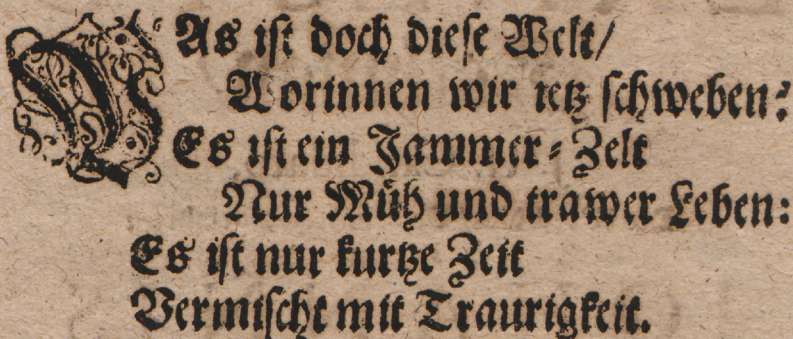 WAs ist doch diese Welt/
Worinnen wir ietz schweben?
Es ist ein Jammer-Zelt
Nur Müh und trawer Leben:
Es ist nur kurtze Zeit
Vermischt mit Traurigkeit.